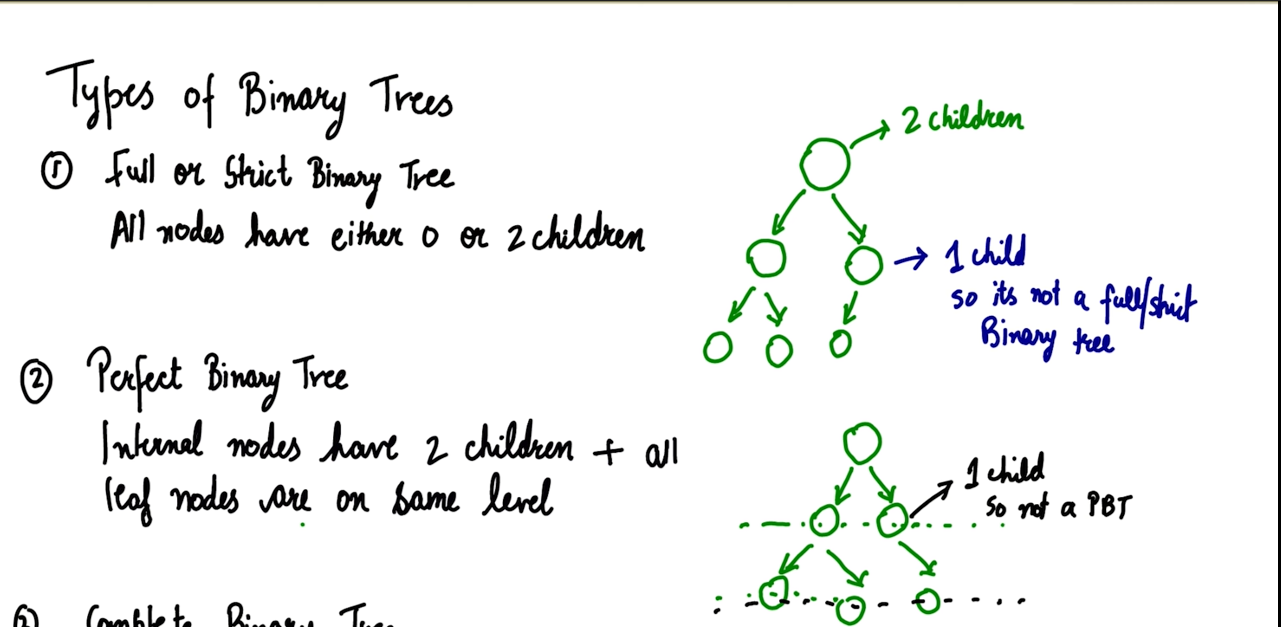 Types of Binary Trees
① Full or Strict Binary Tree
All nodes have either 0 or 2 children
2 children
1 child
so its not a full/strict
Binary tree
② Perfect Binary Tree
Internal nodes have 2 children + all
leaf nodes are on same level
1 child
so not a PBT
Complete Binary Tree